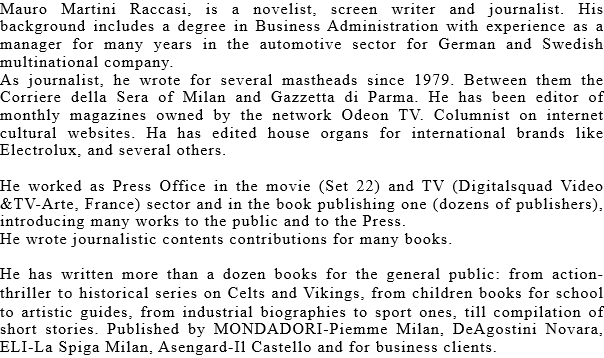 Mauro Martini Raccasi, is a novelist, screen writer and journalist. His
background includes a degree in Business Administration with experience as a
manager for many years in the automotive sector for German and Swedish
multinational company.
As journalist, he wrote for several mastheads since 1979. Between them the
Corriere della Sera of Milan and Gazzetta di Parma. He has been editor of
monthly magazines owned by the network Odeon TV. Columnist on internet
cultural websites. Ha has edited house organs for international brands like
Electrolux, and several others.
He worked as Press Office in the movie (Set 22) and TV (Digitalsquad Video
&TV-Arte, France) sector and in the book publishing one (dozens of publishers),
introducing many works to the public and to the Press.
He wrote journalistic contents contributions for many books.
He has written more than a dozen books for the general public: from action-
thriller to historical series on Celts and Vikings, from children books for school
to artistic guides, from industrial biographies to sport ones, till compilation of
short stories. Published by MONDADORI-Piemme Milan, DeAgostini Novara,
ELI-La Spiga Milan, Asengard-Il Castello and for business clients.